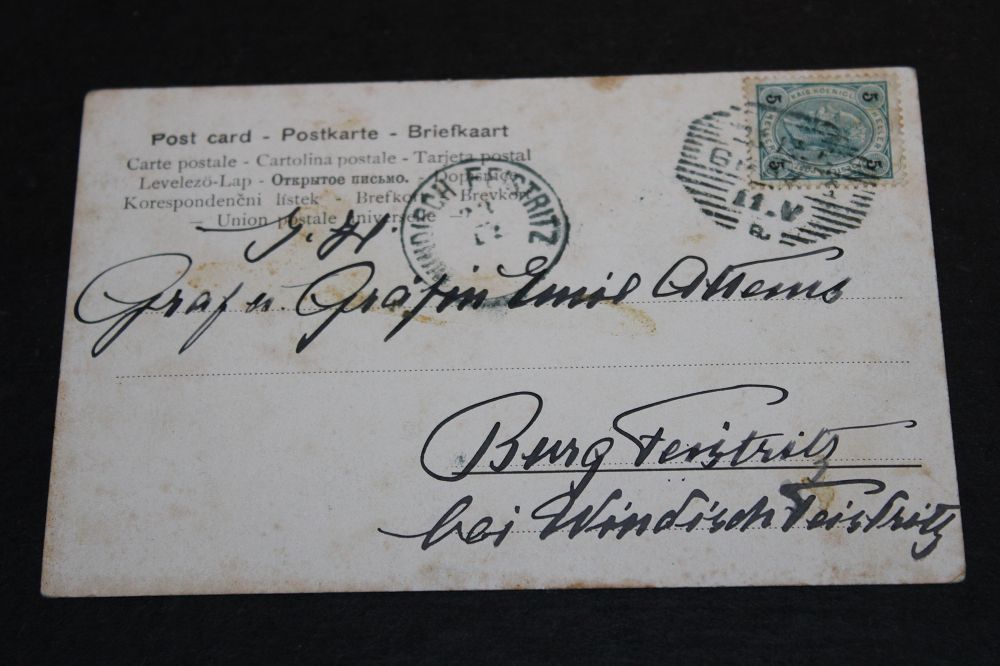 Post card - Postkarte - Briefkaart
Carte postale - Cartolina postale - Tarjeta postal
Levelező-Lap - Открытое письмо. - Dopisnice
Korespondenční lístek - Brefkort - Brevkort
— Union postale universelle —
WINDISCH FEISTRITZ
5 5
5 5
11.V
a.
J. H.
Graf u. Gräfin Emil Attems
Burg Feistritz
bei Windisch Feistritz